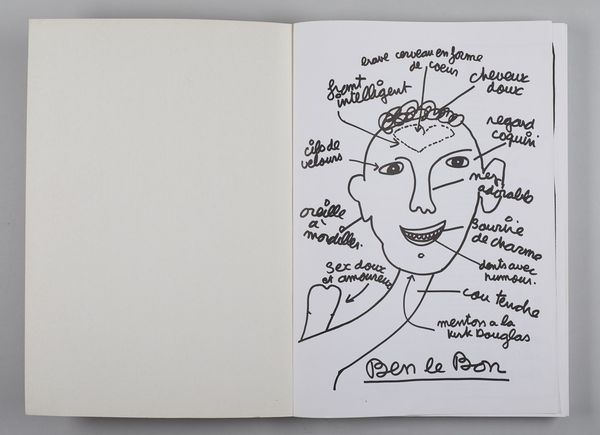 crane cerveau en forme
de coeur
front
intelligent
cheveux
doux
regard
coquin
cils de
velours
nez
adorable
oreille
à
mordiller.
sourire
de charme
dents avec
humour.
sex doux
et amoureux
cou tendre
menton a la
Kirk Douglas
Ben le Bon